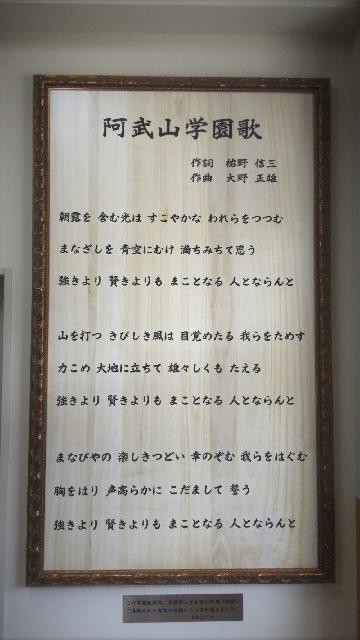 阿武山学園歌
作詞 祐野 信三
作曲 大野 正雄
朝露を 含む光は すこやかな われらをつつむ
まなざしを 青空にむけ 満ちみちて思う
強きより 賢きよりも まことなる 人とならんと
山を打つ きびしき風は 目覚めたる 我らをためす
力こめ 大地に立ちて 雄々しくも たえる
強きより 賢きよりも まことなる 人とならんと
まなびやの 楽しきつどい 幸のぞむ 我らをはぐむ
胸をはり 声高らかに こだまして 誓う
強きより 賢きよりも まことなる 人とならんと